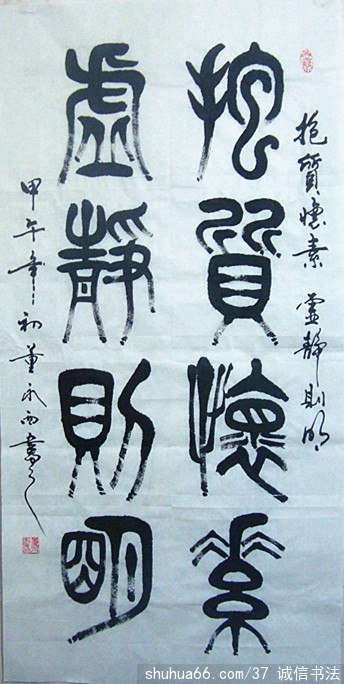 抱質懷素 虛靜則明
抱質懷素
虛靜則明
甲午年初董永西書
shuhua66.com/37 诚信书法